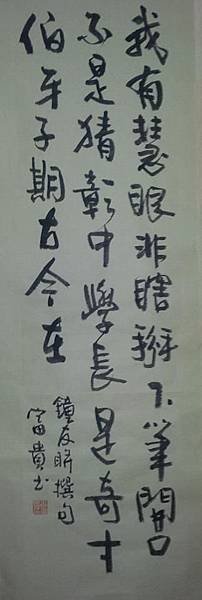 我有慧眼非瞎掰下筆開口
不是猜彰中學長是奇才
伯牙子期古今在
鐘友聯撰句
富貴書